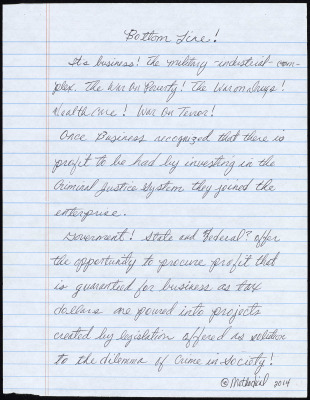 Bottom Line!
Its business! The military-industrial-com-
plex. The War on Poverty! The War on Drugs!
Health Care! War On Terror!
Once Business recognized that there is
profit to be had by investing in the
Criminal Justice System they joined the
enterprise.
Goverment! State and Federal? offer
the opportunity to procure profit that
is guarantied for business as tax
dollars are poured into projects
created by legislation offered as solution
to the dilemma of Crime in Society!
2014